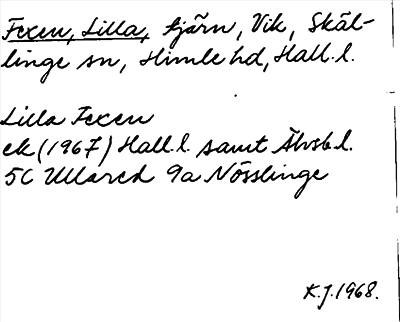 Fexen, Lilla, tjärn, Vik, Skäl-
linge sn, Himle hd, Hall. l.
Lilla Fexen
ek (1967) Hall. l. samt Älvsb. l.
5C Ullared 9a Nösslinge
K.J. 1968.